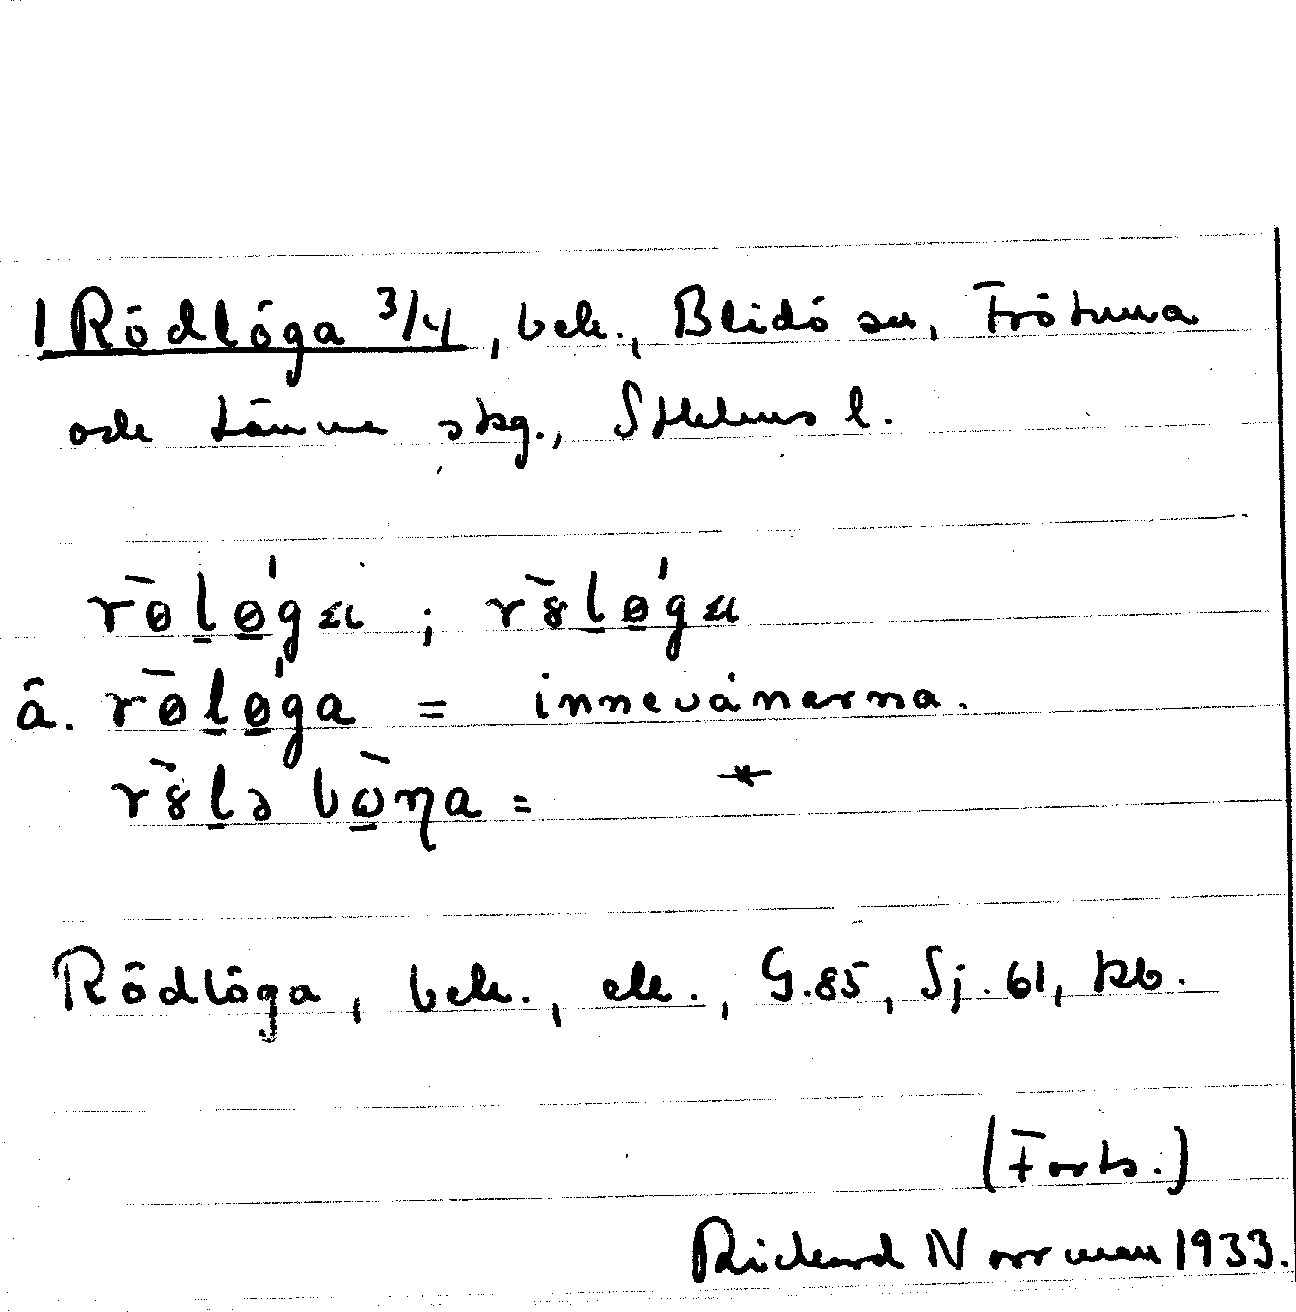 1 Rödlöga 3/4, beb., Blidö sn, Frötuna
och Länna skg., Sthlms l.
rø̄lø̀ga ; rø̄lø̀ga
å. rø̄lø̀ga = innevånarna.
bōna =
Rödlöga, beb., ek., G.85, Sj. 61, kb.
(Forts.)
Rickard Norrman 1933.